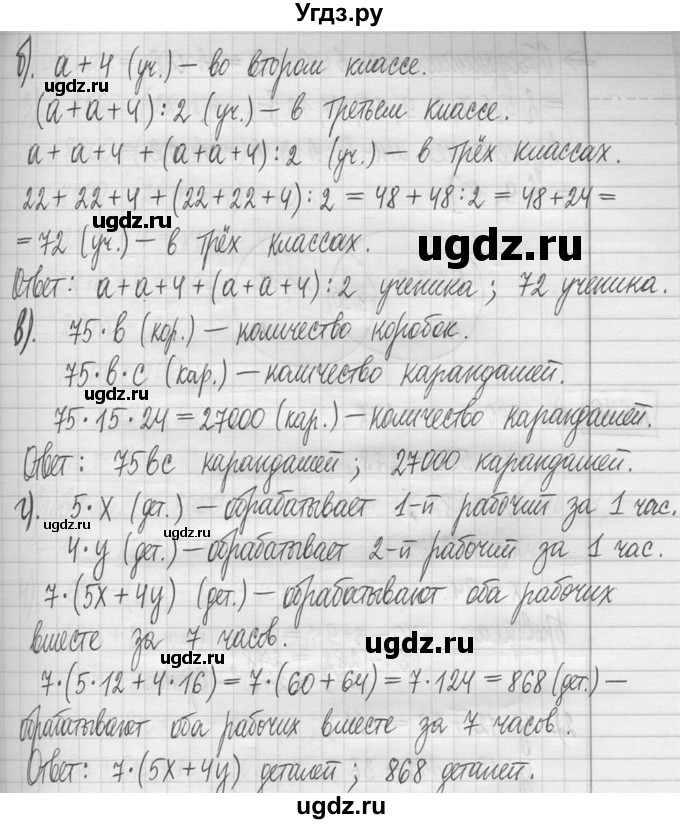 Угдз.ру
б). a + 4 (уч.) – во втором классе.
(a + a + 4) : 2 (уч.) – в третьем классе.
a + a + 4 + (a + a + 4) : 2 (уч.) – в трёх классах.
22 + 22 + 4 + (22 + 22 + 4) : 2 = 48 + 48 : 2 = 48 + 24 =
ugdz.ru
ugdz.ru
= 72 (уч.) – в трёх классах.
Ответ: a + a + 4 + (a + a + 4) : 2 ученика ; 72 ученика.
в). 75 · b (кор.) – количество коробок.
ugdz.ru
75 · b · c (кар.) – количество карандашей.
75 · 15 · 24 = 27000 (кар.) – количество карандашей.
Ответ: 75bc карандашей ; 27000 карандашей.
г). 5 · x (дет.) – обрабатывает 1-й рабочий за 1 час.
ugdz.ru
4 · y (дет.) – обрабатывает 2-й рабочий за 1 час.
7 · (5x + 4y) (дет.) – обрабатывают оба рабочих
вместе за 7 часов.
ugdz.ru
ugdz.ru
7 · (5 · 12 + 4 · 16) = 7 · (60 + 64) = 7 · 124 = 868 (дет.) –
обрабатывают оба рабочих вместе за 7 часов.
Ответ: 7 · (5x + 4y) деталей ; 868 деталей.
ugdz.ru